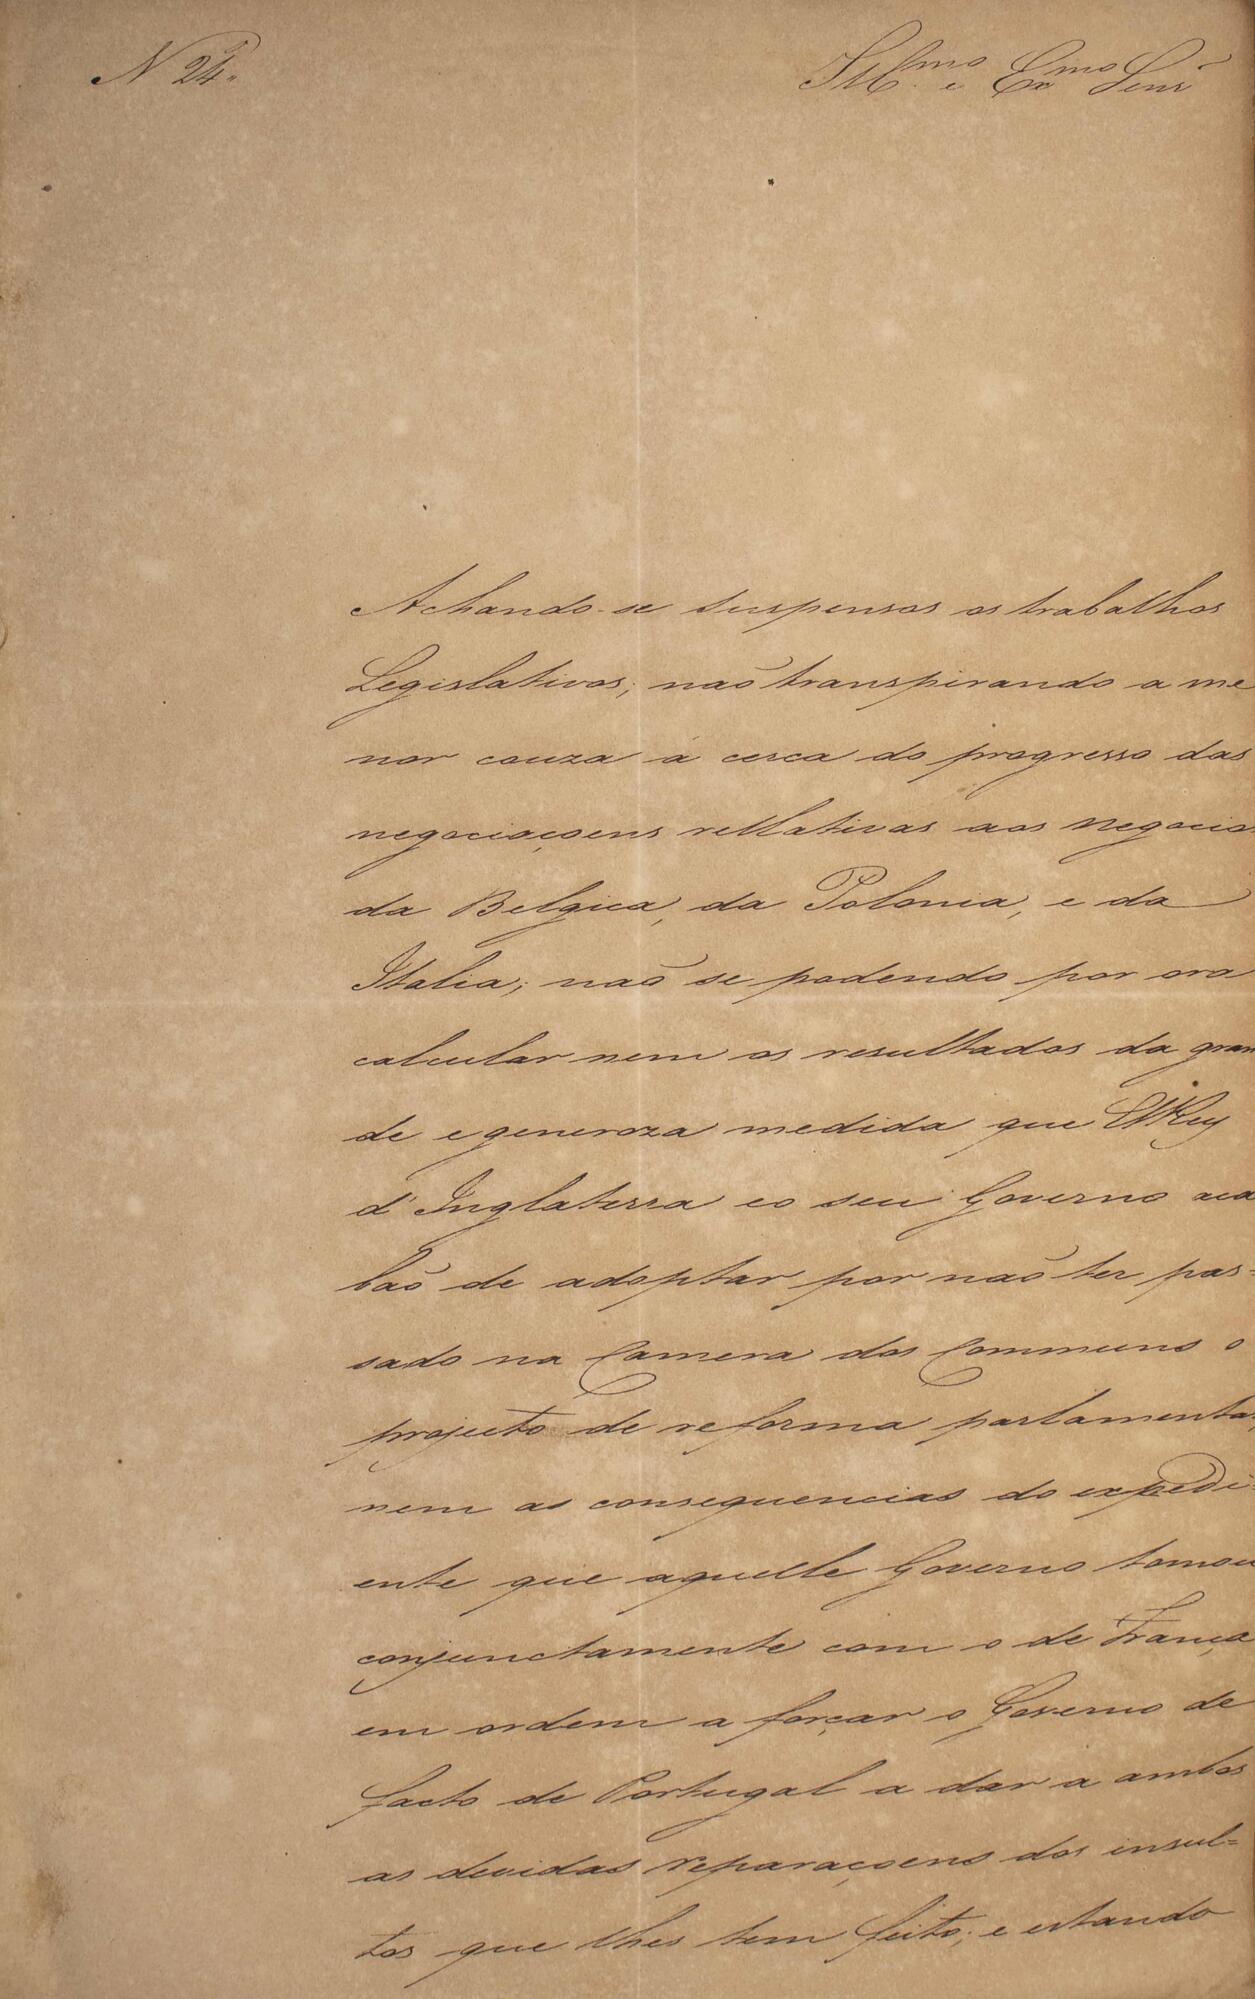 N 24.
Ill.mo e Ex.mo Senr
Achando-se suspensos os trabalhos
Legislativos; naõ transpirando a me
nor couza á cerca do progresso das
negociaçoens rellativas aos negocios
da Belgica, da Polonia, e da
Italia; naõ se podendo por ora
calcular nem os resultados da gran
de e generoza medida que ElRey
d'Inglaterra e o seu Governo aca
baõ de adoptar por naõ ter pas-
sado na Camera dos Communs o
projecto de reforma parlamentar,
nem as consequencias do expedi-
ente que aquelle Governo tomou
conjunctamente com o de França
em ordem a forçar o Governo de
facto de Portugal a dar a ambos
as devidas reparaçoens dos insul=
tos que lhes tem feito; e estando